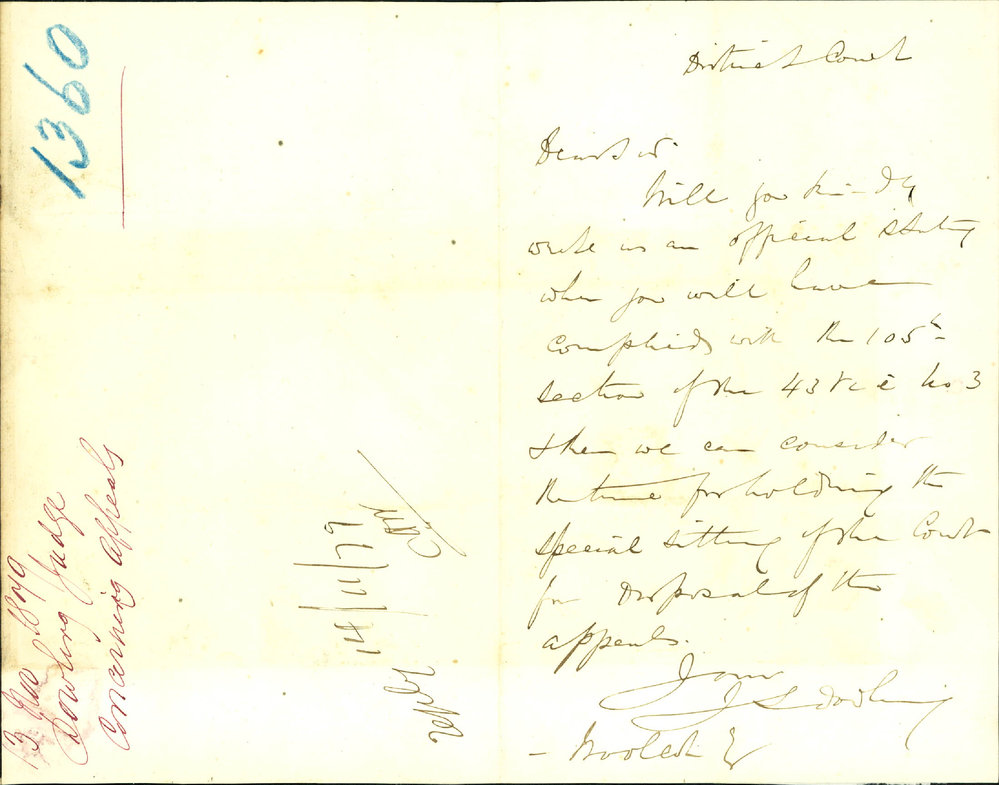 District Court
Dear Sir
Will you kindly
write us an official stating
when you will have
complied with the 105th
section of the 43 Vic No 3
& then we can consider
the time for holding the
special sitting of the Court
for Disposal of the
appeals.
Yours
J S Dowling
Woolcott Esq
1360
13 Nov 1879
Dowling Judge
Concerning Appeals
Reply 14/11/79